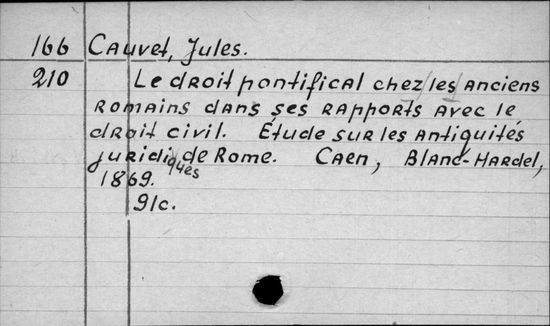 166 Cauvet, Jules.
210 Le droit pontifical chez les anciens
romains dans ses rapports avec le
droit civil. Étude sur les antiquités
juridiques de Rome. Caen, Blanc-Hardel,
1869.
91c.